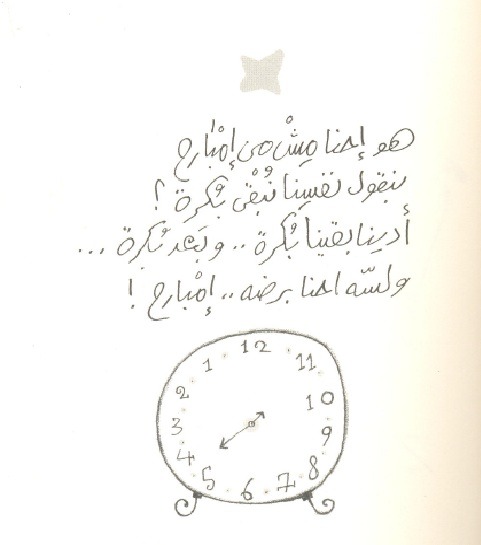 هو إحنا مِشْ من إمْبَارح
بنقول نفسِنا نُبْقَى بُكرة ؟
أدينا بقينا بُكرة .. وبَعد بُكرة ...
ولسّه احنا برضه .. إمْبارح !
12
11
10
9
8
7
6
5
4
3
2
1